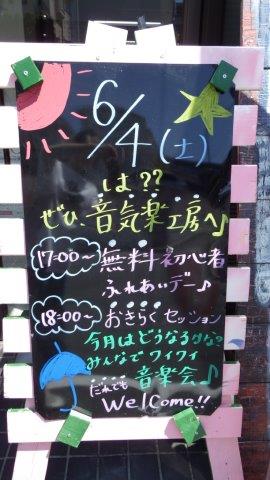 6/4(土)
は??
ぜひ、音気楽工房へ♪
17:00〜 無料初心者
ふれあいデー♪
18:00〜 おきらくセッション
今月はどうなるかな?
みんなでワイワイ
だれでも 音楽会♪
Welcome!!